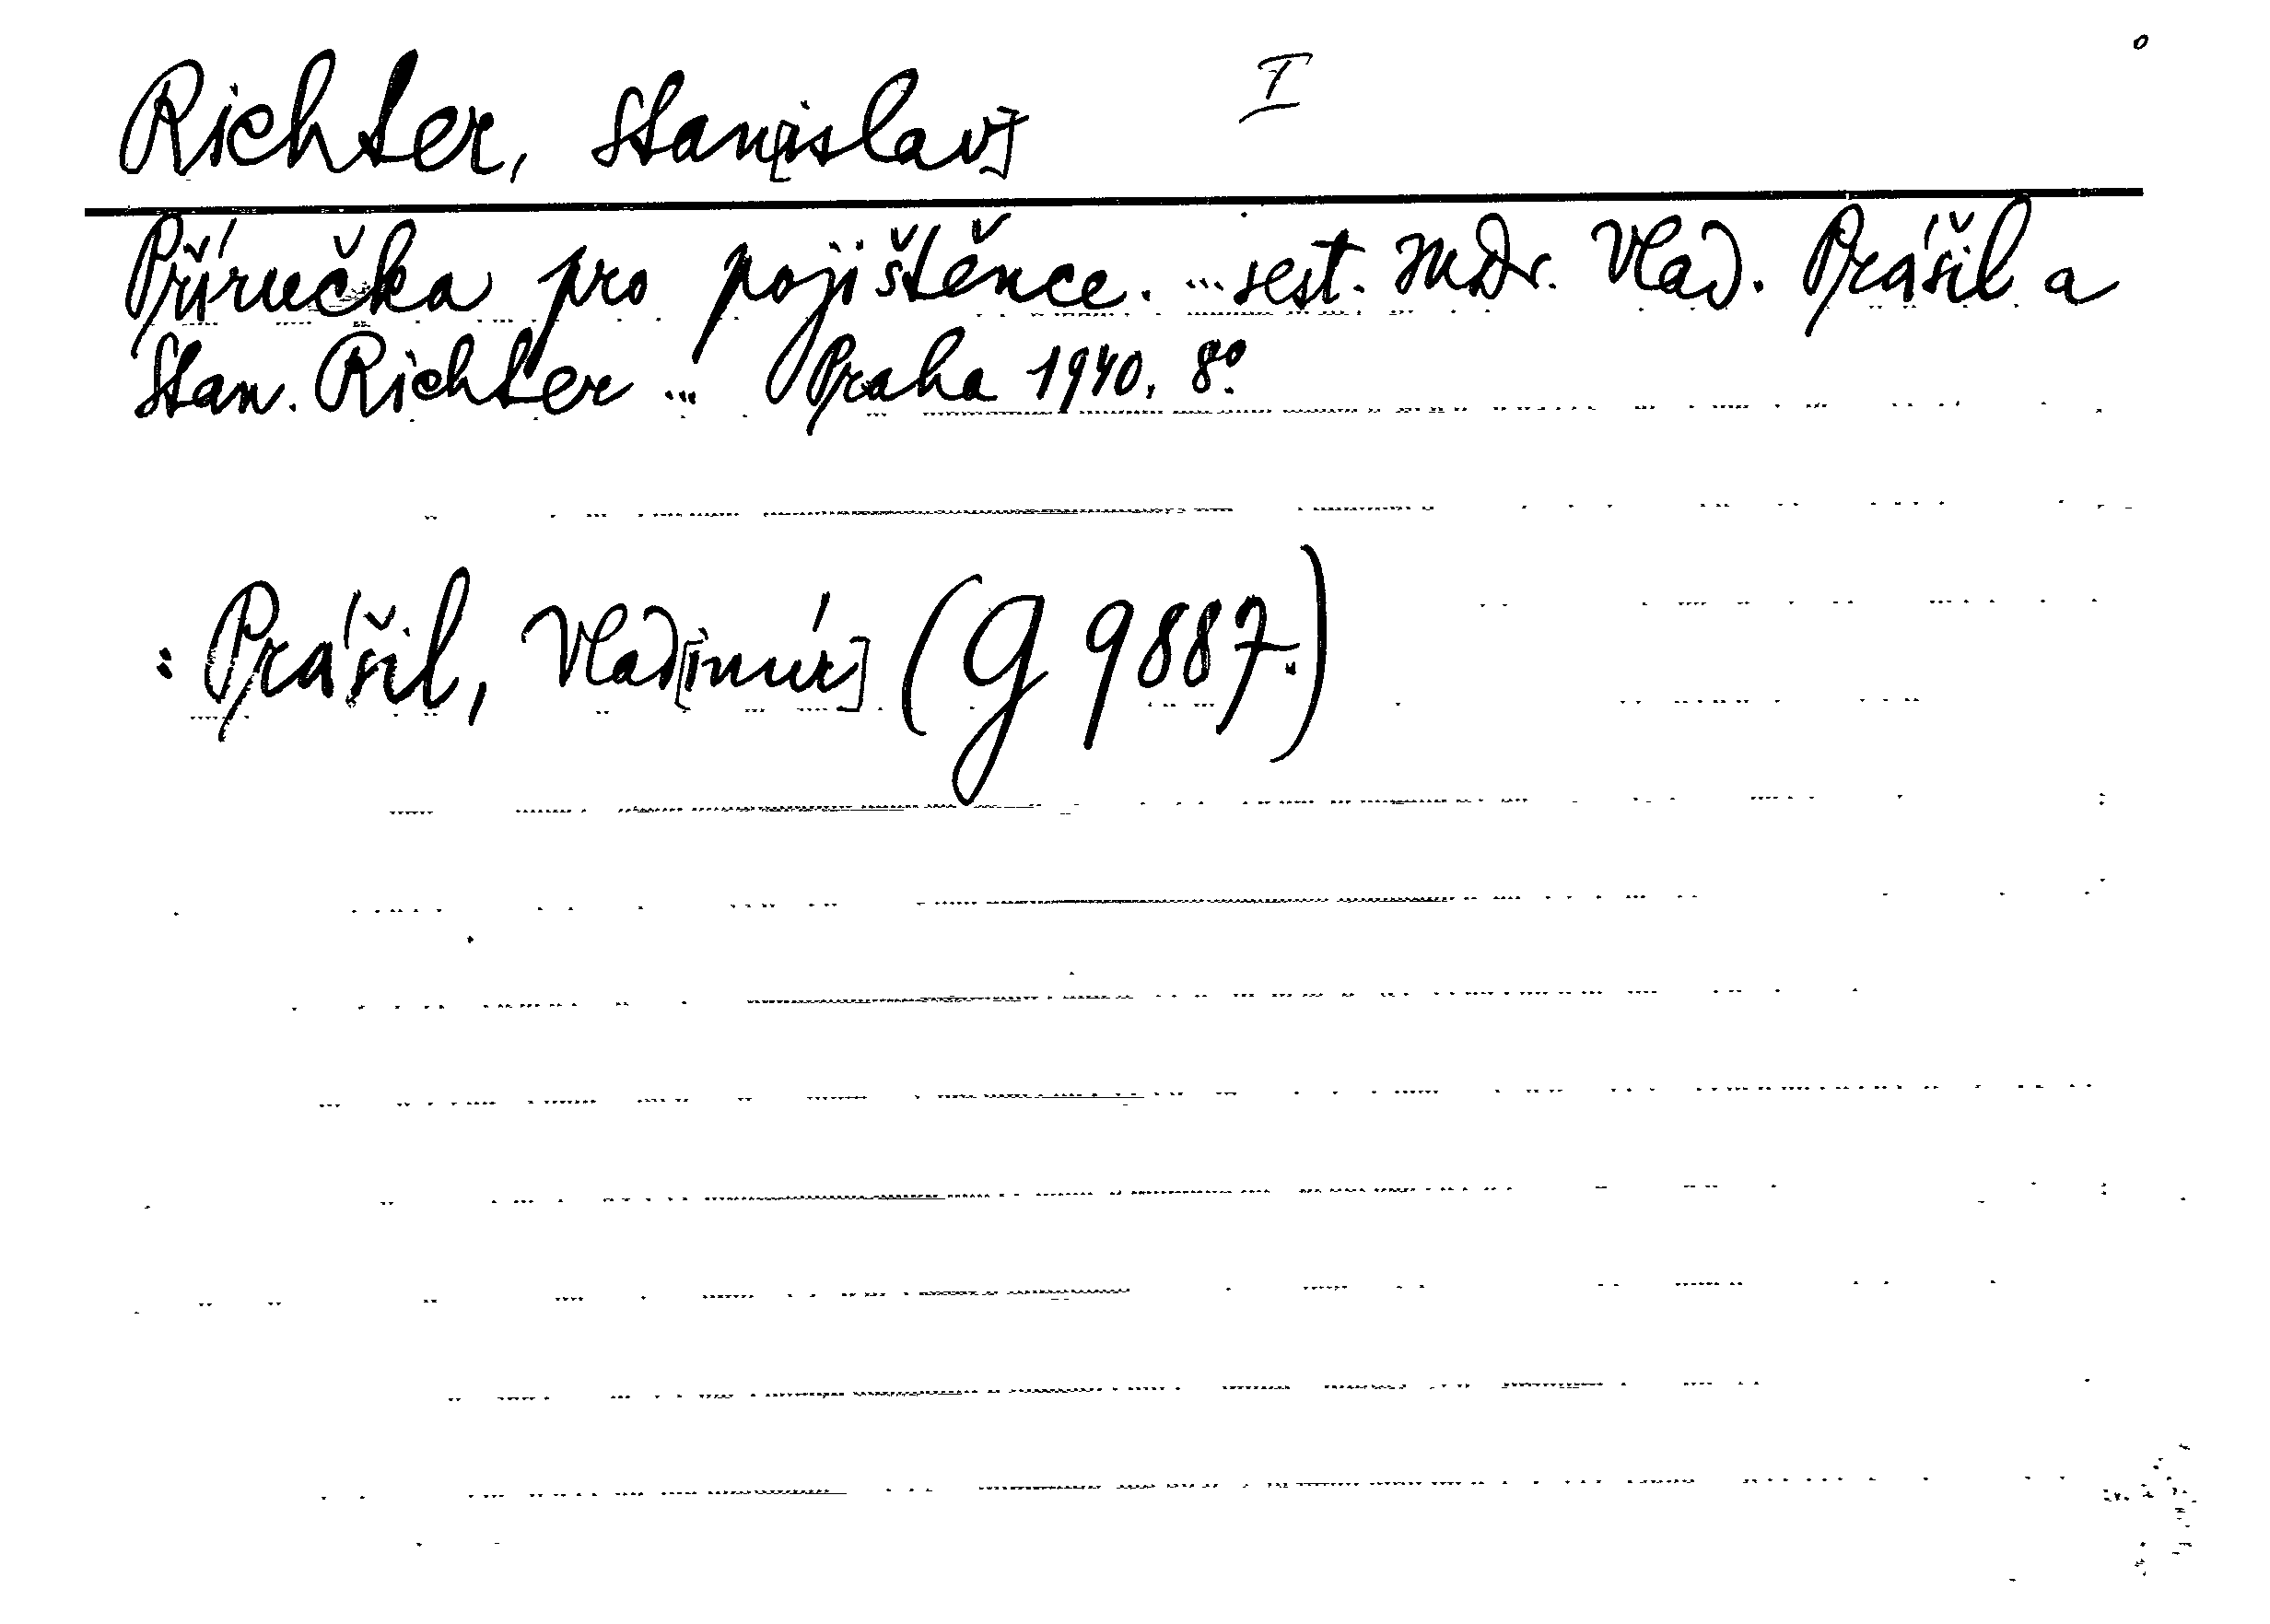 Richter, Stan[islav] I
Příručka pro pojištěnce. ... sest. MDr. Vlad. Prášil a
Stan. Richter ... Praha 1940. 8°.
: Prášil, Vlad[imír] (G 9887.)